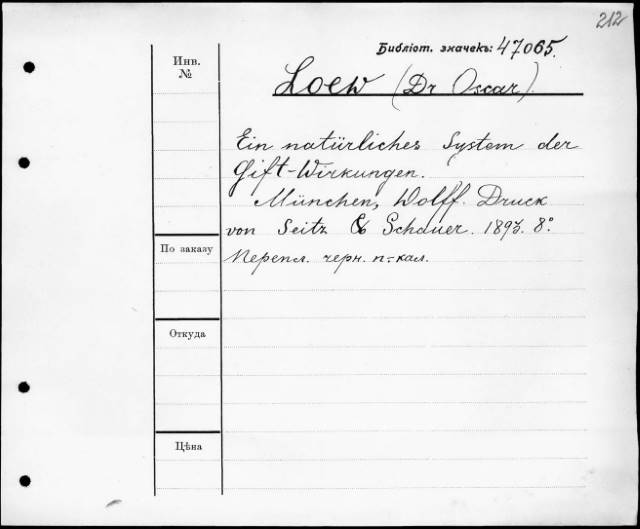 212
Библіот. значекъ: 47065.
Инв.
№
Loew (Dr Oscar).
Ein natürliches System der
Gift-Wirkungen.
München, Wolff. Druck
von Seitz & Schauer. 1893. 8°.
По заказу
Перепл. черн. п.-кал.
Откуда
Цѣна